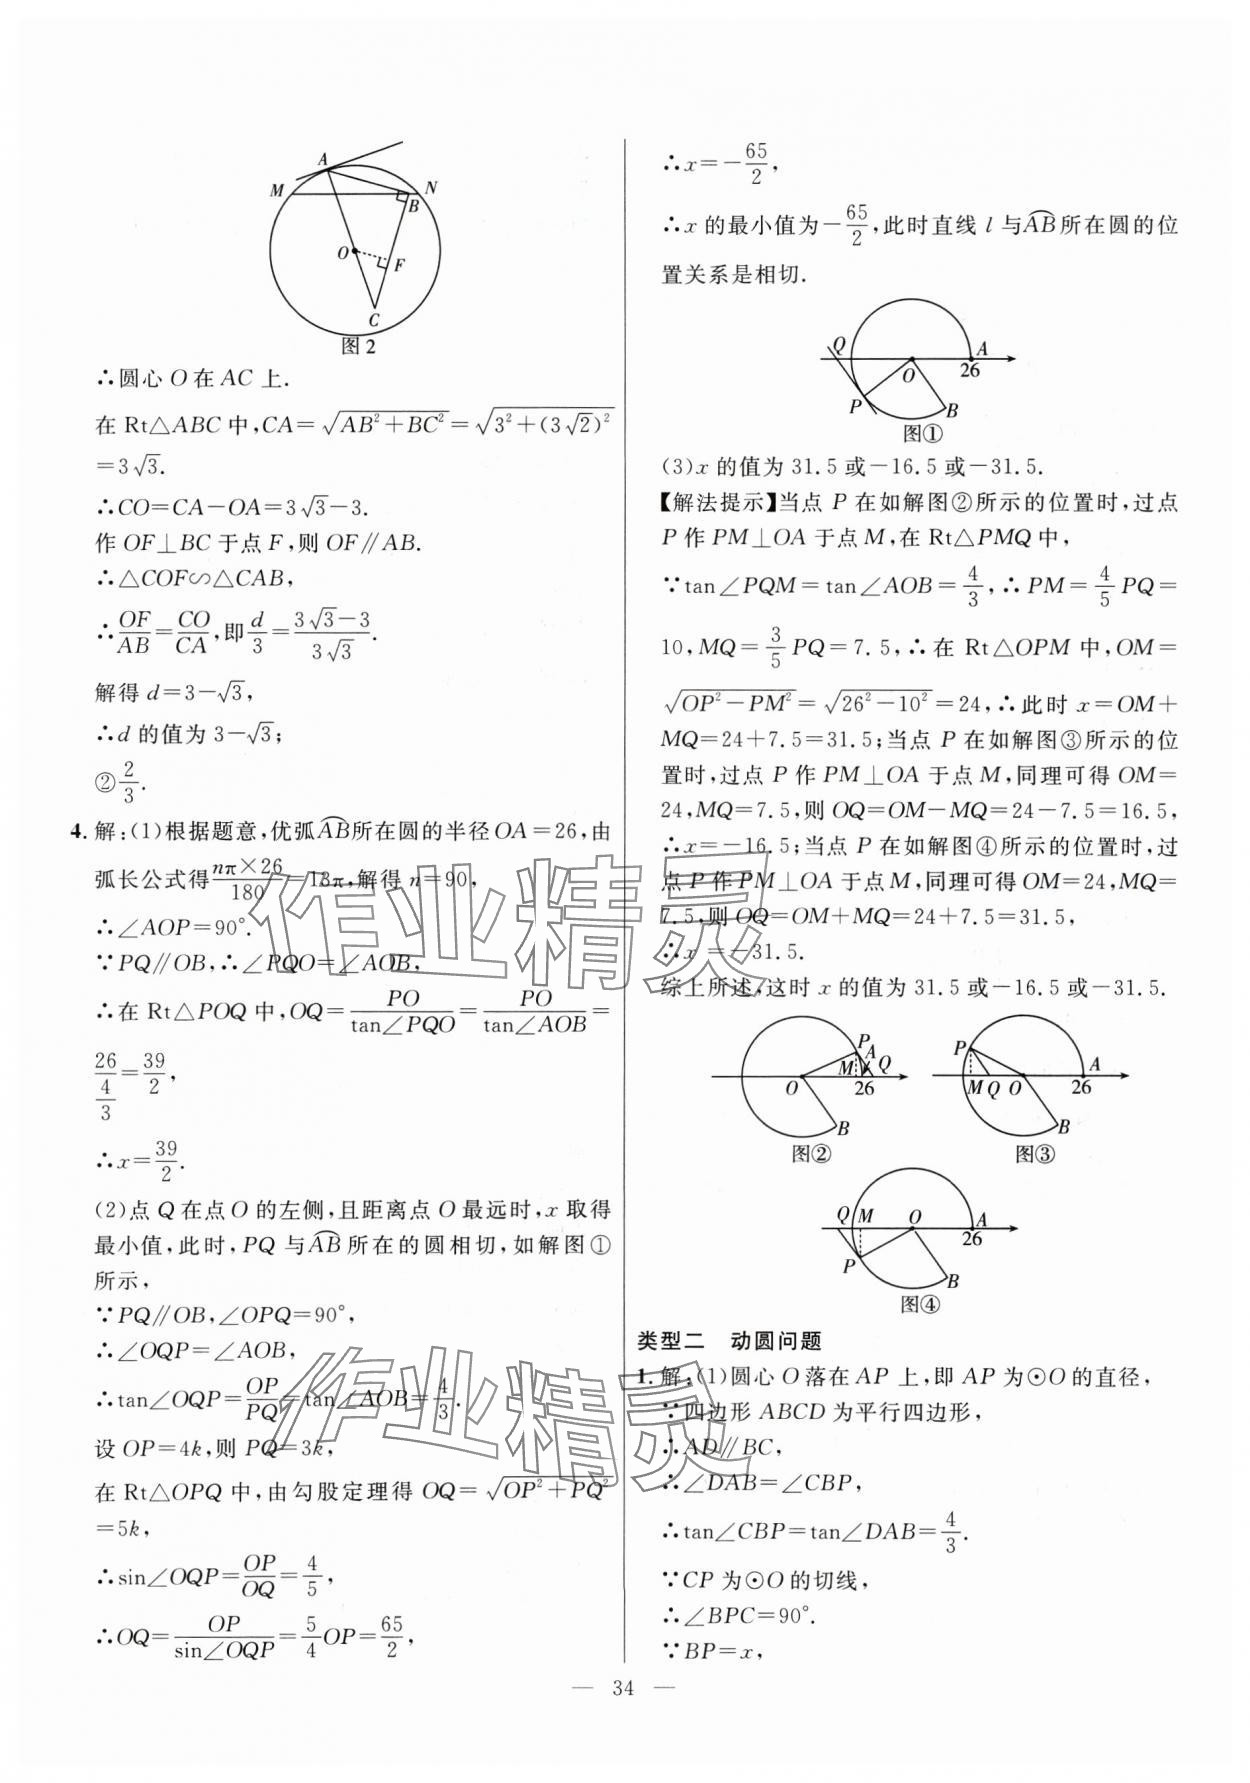 A
M
N
B
O
F
C
图2
∴圆心 O 在 AC 上.
在 Rt△ABC 中,CA=√(AB²+BC²)=√(3²+(3√2)²)
=3√3.
∴CO=CA-OA=3√3-3.
作 OF⊥BC 于点 F,则 OF∥AB.
∴△COF∽△CAB,
∴OF/AB=CO/CA,即d/3=(3√3-3)/(3√3).
解得 d=3-√3,
∴d 的值为 3-√3;
②2/3.
4. 解:(1)根据题意,优弧AB所在圆的半径OA=26,由
弧长公式得(nπ×26)/180=13π,解得 n=90,
∴∠AOP=90°.
∵PQ∥OB,∴∠PQO=∠AOB,
∴在 Rt△POQ 中,OQ=PO/tan∠PQO=PO/tan∠AOB=
26/(4/3)=39/2,
∴x=39/2.
(2)点 Q 在点 O 的左侧,且距离点 O 最远时,x 取得
最小值,此时,PQ 与AB所在的圆相切,如解图①
所示,
∵PQ∥OB,∠OPQ=90°,
∴∠OQP=∠AOB,
∴tan∠OQP=OP/PQ=tan∠AOB=4/3.
设 OP=4k,则 PQ=3k,
在 Rt△OPQ 中,由勾股定理得 OQ=√(OP²+PQ²)
=5k,
∴sin∠OQP=OP/OQ=4/5,
∴OQ=OP/sin∠OQP=5/4OP=65/2,
∴x=-65/2,
∴x 的最小值为-65/2,此时直线 l 与AB所在圆的位
置关系是相切.
Q
A
O
26
P
B
图①
(3)x 的值为 31.5 或-16.5 或-31.5.
【解法提示】当点 P 在如解图②所示的位置时,过点
P 作 PM⊥OA 于点 M,在 Rt△PMQ 中,
∵tan∠PQM=tan∠AOB=4/3,∴PM=4/5PQ=
10,MQ=3/5PQ=7.5,∴在 Rt△OPM 中,OM=
√(OP²-PM²)=√(26²-10²)=24,∴此时 x=OM+
MQ=24+7.5=31.5;当点 P 在如解图③所示的位
置时,过点 P 作 PM⊥OA 于点 M,同理可得 OM=
24,MQ=7.5,则 OQ=OM-MQ=24-7.5=16.5,
∴x=-16.5;当点 P 在如解图④所示的位置时,过
点 P 作 PM⊥OA 于点 M,同理可得 OM=24,MQ=
7.5,则 OQ=OM+MQ=24+7.5=31.5,
∴x=-31.5.
综上所述,这时 x 的值为 31.5 或-16.5 或-31.5.
P
A
M
Q
O
26
B
图②
P
A
M Q O
26
B
图③
Q M
O
A
26
P
B
图④
类型二 动圆问题
1. 解:(1)圆心 O 落在 AP 上,即 AP 为⊙O 的直径,
∵四边形 ABCD 为平行四边形,
∴AD∥BC,
∴∠DAB=∠CBP,
∴tan∠CBP=tan∠DAB=4/3.
∵CP 为⊙O 的切线,
∴∠BPC=90°.
∵BP=x,
— 34 —
作业精灵
作业精灵